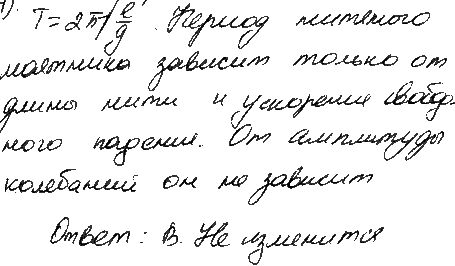 1). T = 2π√(l/g). Период нитяного
маятника зависит только от
длины нити и ускорения свобод-
ного падения. От амплитуды
колебаний он не зависит
Ответ: В. Не изменится